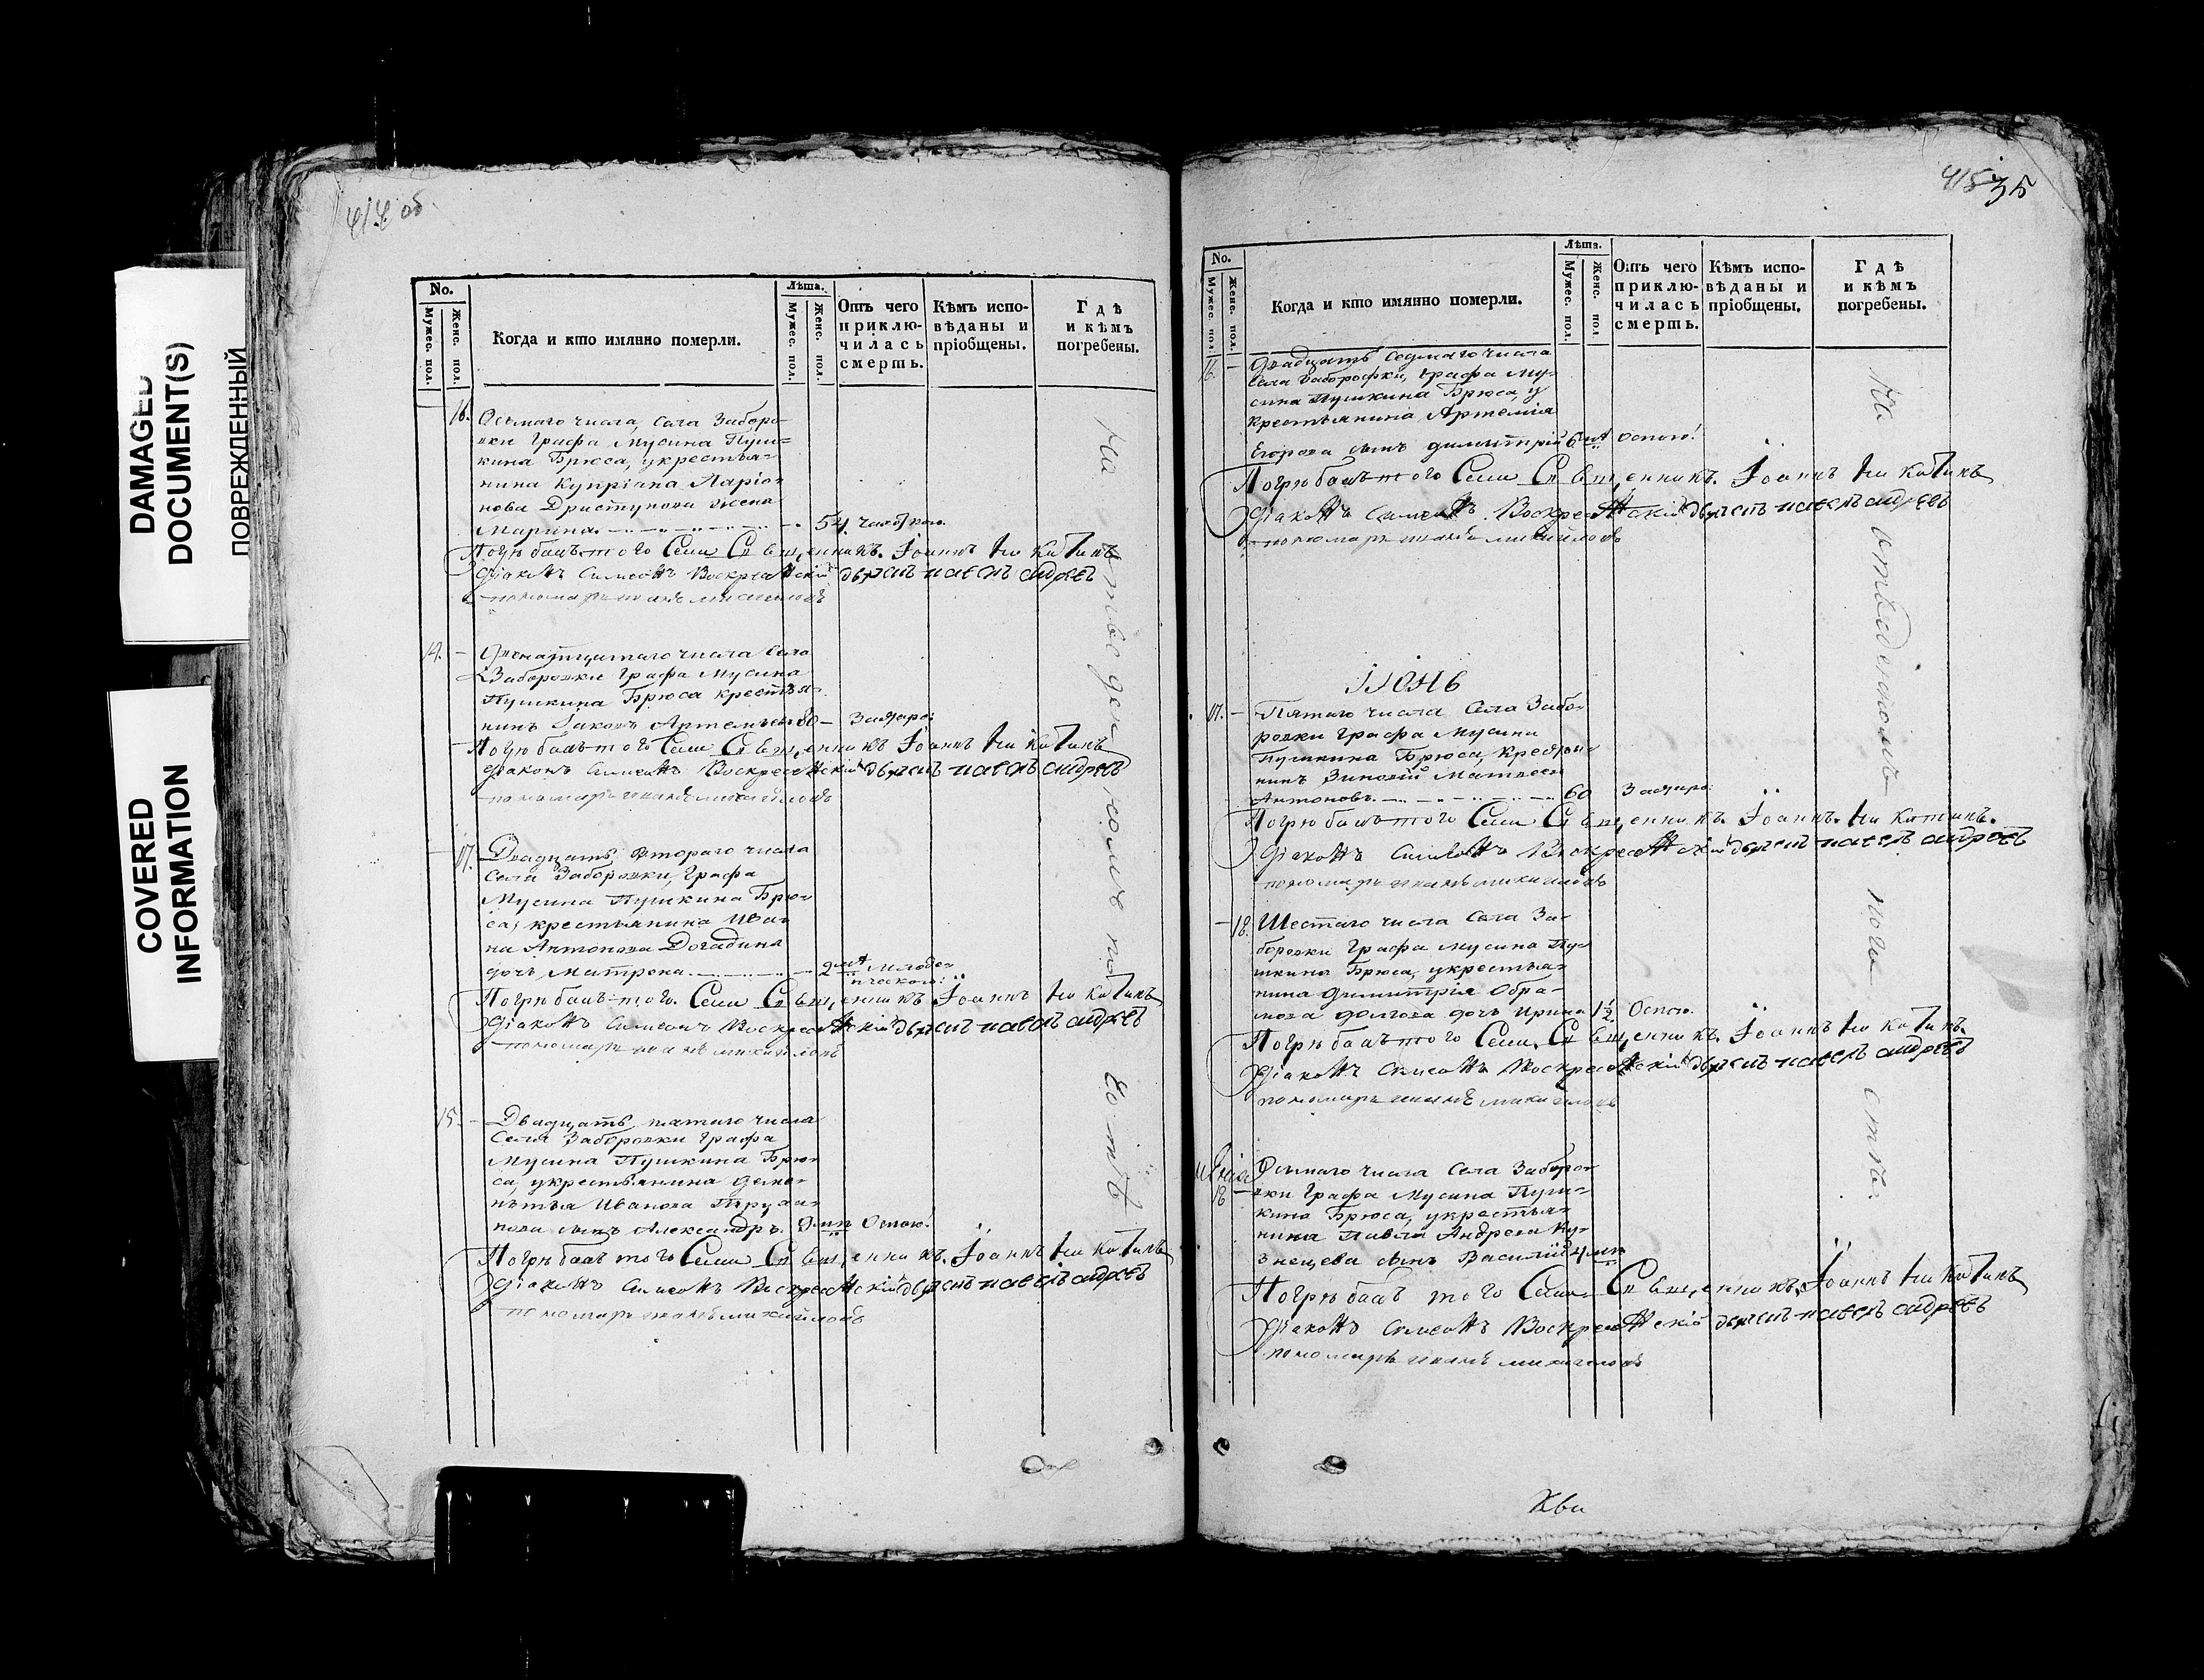 DAMAGED
DOCUMENT(S)
ПОВРЕЖДЕННЫЙ
COVERED
INFORMATION
414 об
No.
Мужес. пол.
Женс. пол.
Когда и кто имянно померли.
Лѣта.
Мужес. пол.
Женс. пол.
Отъ чего приклю-чилась смерть.
Кѣмъ испо-вѣданы и пріобщены.
Гдѣ и кѣмъ погребены.
16. Осьмаго числа, Села Заборо-
вки Графа Мусина Пуш-
кина Брюса, укрестья-
нина Купріяна Ларіо-
нова Дристунова жена
Марина 54. Чахоткою.
Погребалъ того Села Священникъ Іоаннъ Никитинъ
Діаконъ Симеонъ Воскресенскій дьячекъ павелъ андреевъ
пономарь иванъ михайловъ
14. — Двенатцатаго числа Села
Заборовки Графа Мусина
Пушкина Брюса крестья-
нинъ Іаковъ Артемьевъ 80 —
Погребалъ того Села Священникъ Іоаннъ Никитинъ
Діаконъ Симеонъ Воскресенскій дьячекъ павелъ андреевъ
пономарь иванъ михайловъ
— 17. Двадцать втораго числа
Села Заборовки, Графа
Мусина Пушкина Брю-
са, крестьянина Ива-
на Антонова Догадина
дочь Матрена 2
Погребалъ того Села Священникъ Іоаннъ Никитинъ
Діаконъ Симеонъ Воскресенскій дьячекъ павелъ андреевъ
пономарь иванъ михайловъ
15. — Двадцать пятаго числа
Села Заборовки Графа
Мусина Пушкина Брю-
са, укрестьянина
Иванова
сынъ Александръ. Оспою.
Погребалъ того Села Священникъ Іоаннъ Никитинъ
Діаконъ Симеонъ Воскресенскій дьячекъ павелъ андреевъ
пономарь иванъ михайловъ
На отведенномъ по
415 35
No.
Мужес. пол.
Женс. пол.
Когда и кто имянно померли.
Лѣта.
Мужес. пол.
Женс. пол
Отъ чего приклю-чилась смерть.
Кѣмъ испо-вѣданы и пріобщены.
Гдѣ и кѣмъ погребены.
16. — Двадцать седмаго числа
Села Заборовки, Графа Му-
сина Пушкина Брюса, у
крестьянина Артемія
Егорова сынъ димитрій 6 оспою.
Погребалъ того Села Священникъ. Іоаннъ Никитинъ
Діаконъ Симеонъ Воскресенскій дьячекъ павелъ андреевъ
пономарь иванъ михайловъ
Іюнь
17. — Пятаго числа Села Забо-
ровки Графа Мусина
Пушкина Брюса, крестья-
нинъ Зиновій Матвеевъ
Антоновъ. 60
Погребалъ того Села Священникъ. Іоаннъ Никитинъ.
Діаконъ Симеонъ Воскресенскій дьячекъ павелъ андреевъ
пономарь иванъ михайловъ
— 18. Шестаго числа Села За-
боровки Графа Мусина Пу-
шкина Брюса, укрестья-
нина Димитрія
долгова дочь Ирина 1½ Оспою.
Погребалъ того Села Священникъ. Іоаннъ Никитинъ.
Діаконъ Симеонъ Воскресенскій дьячекъ павелъ андреевъ
пономарь иванъ михайловъ
18 — Осьмаго числа Села Заборо-
вки Графа Мусина Пуш-
кина Брюса, укрестья-
нина Павла Андреева Ку-
знецова сынъ Василій 4
Погребалъ того Села Священникъ. Іоаннъ Никитинъ
Діаконъ Симеонъ Воскресенскій дьячекъ павелъ андреевъ
пономарь иванъ михайловъ
На отведенномъ